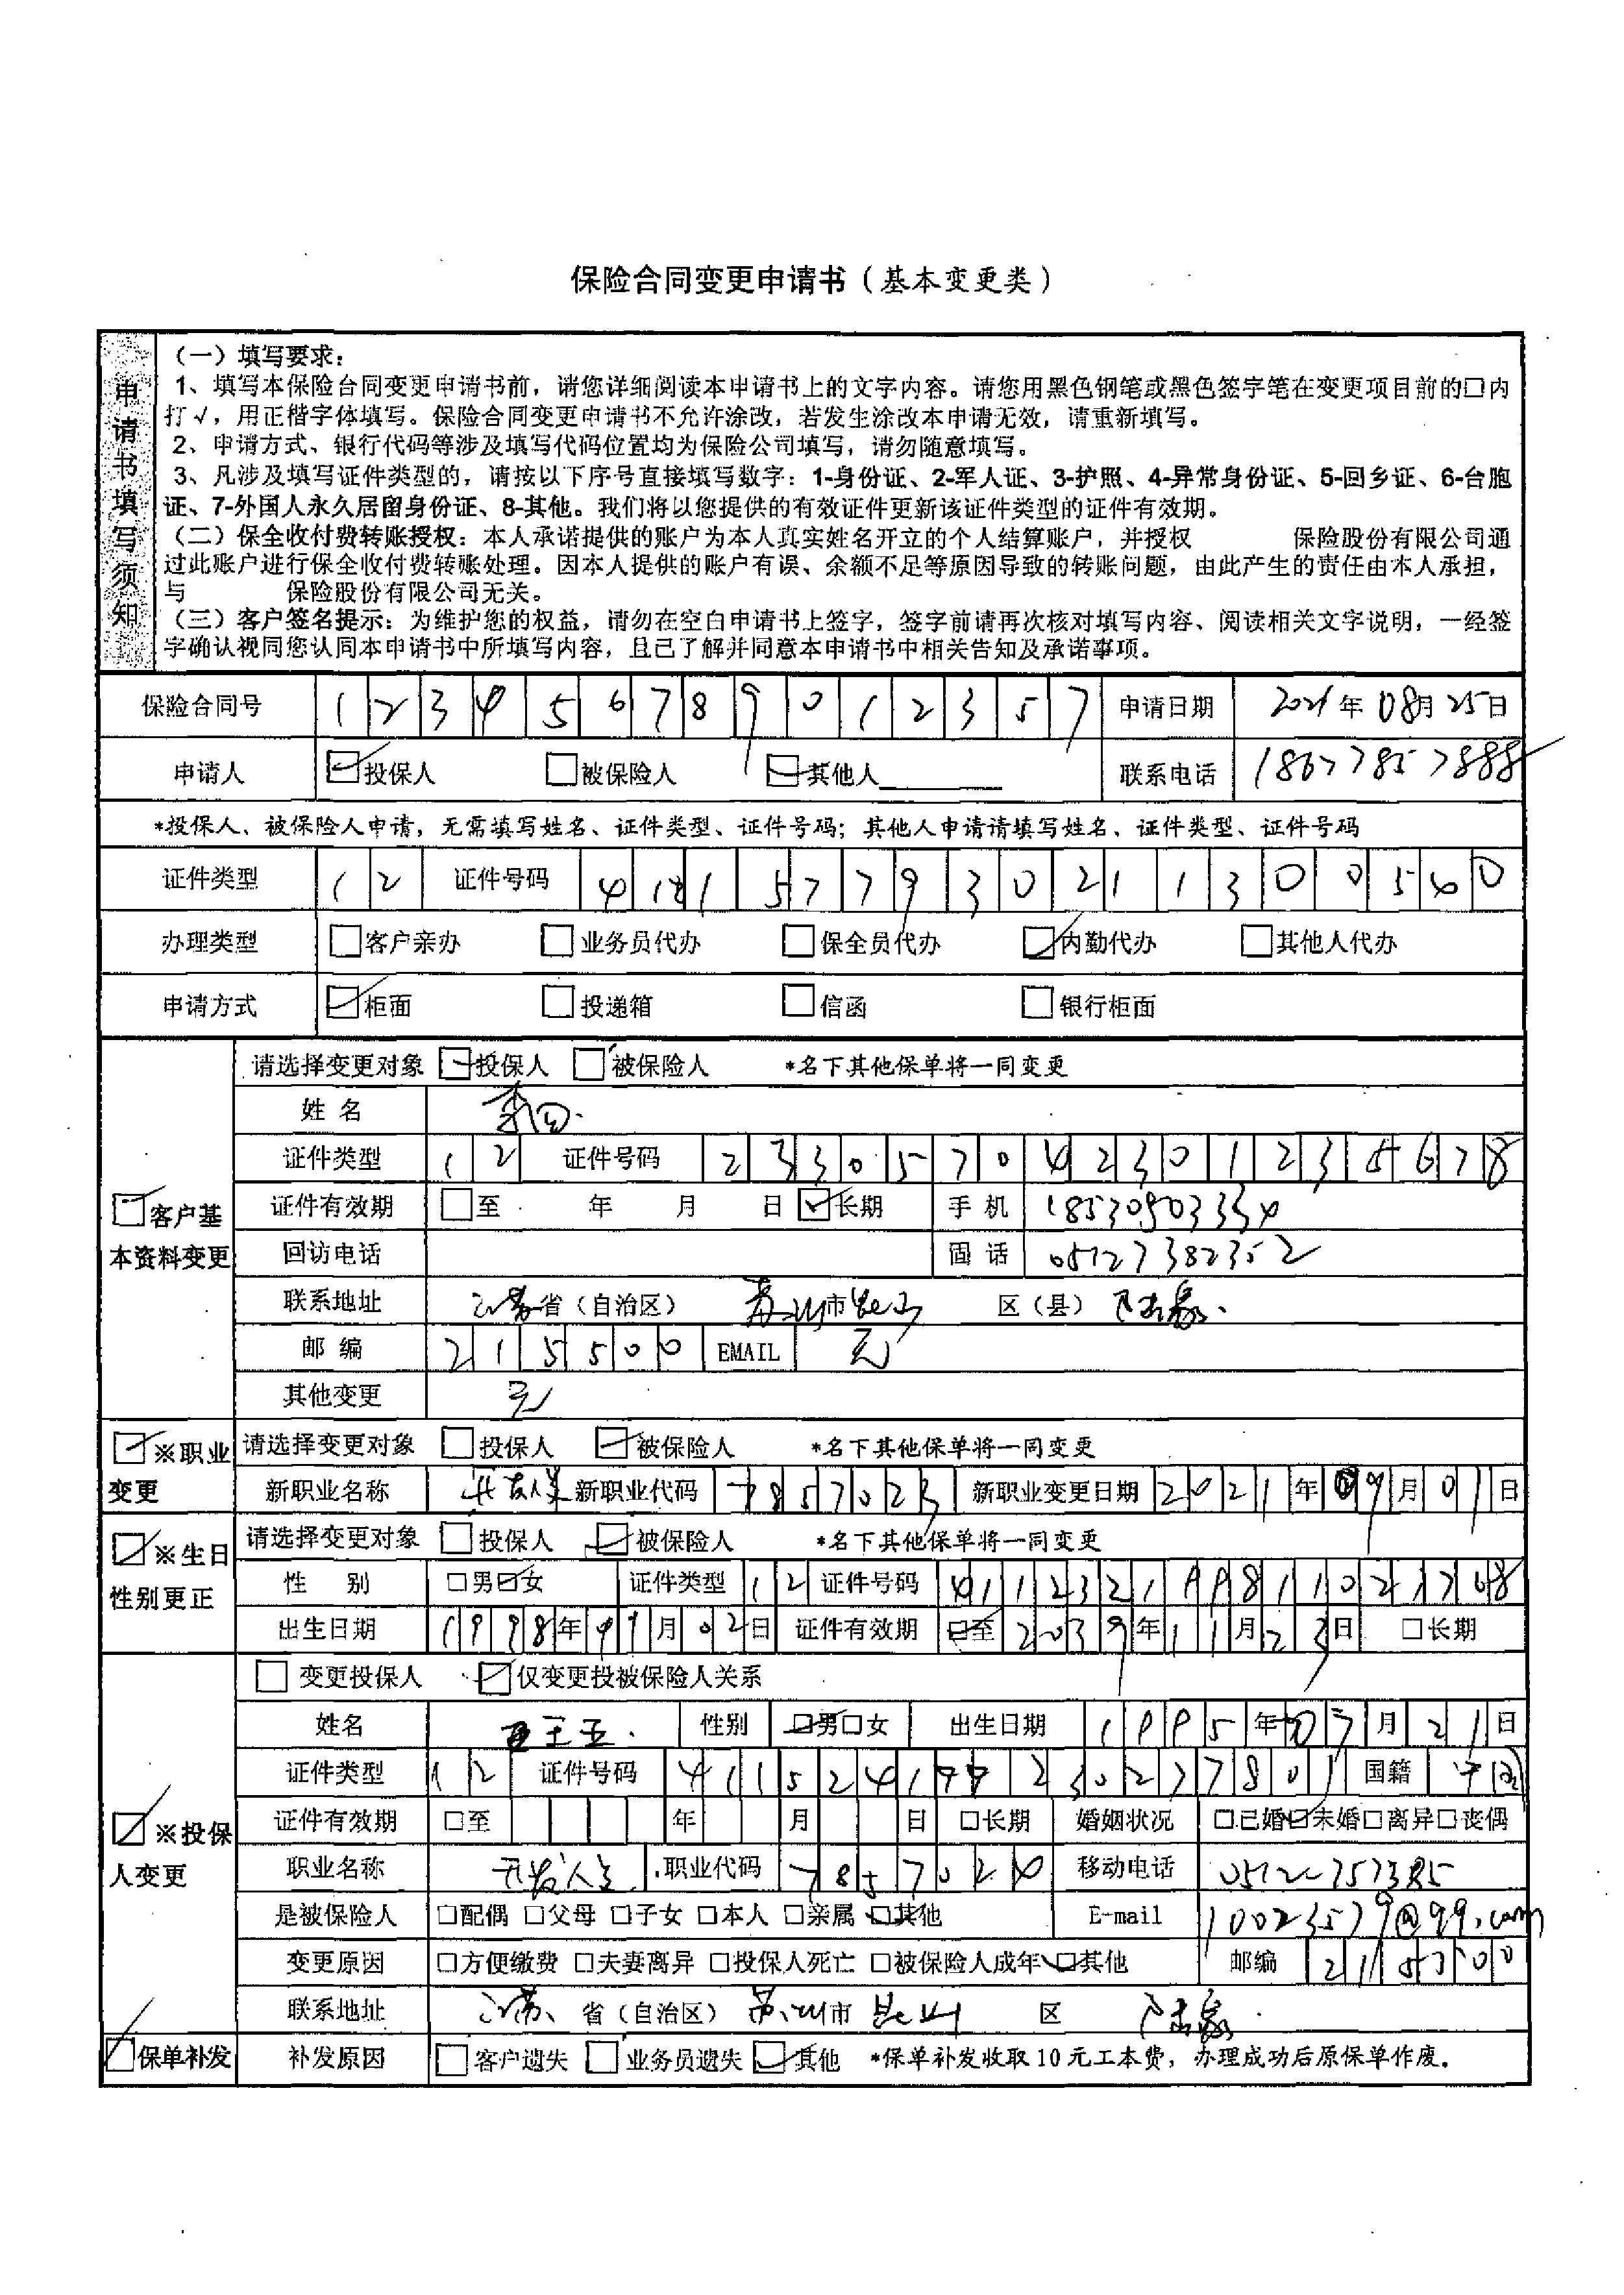 保险合同变更申请书（基本变更类）
申请书填写须知
（一）填写要求：
1、填写本保险合同变更申请书前，请您详细阅读本申请书上的文字内容。请您用黑色钢笔或黑色签字笔在变更项目前的□内
打√，用正楷字体填写。保险合同变更申请书不允许涂改，若发生涂改本申请无效，请重新填写。
2、申请方式、银行代码等涉及填写代码位置均为保险公司填写，请勿随意填写。
3、凡涉及填写证件类型的，请按以下序号直接填写数字：1-身份证、2-军人证、3-护照、4-异常身份证、5-回乡证、6-台胞
证、7-外国人永久居留身份证、8-其他。我们将以您提供的有效证件更新该证件类型的证件有效期。
（二）保全收付费转账授权：本人承诺提供的账户为本人真实姓名开立的个人结算账户，并授权 保险股份有限公司通
过此账户进行保全收付费转账处理。因本人提供的账户有误、余额不足等原因导致的转账问题，由此产生的责任由本人承担，
与 保险股份有限公司无关。
（三）客户签名提示：为维护您的权益，请勿在空白申请书上签字，签字前请再次核对填写内容、阅读相关文字说明，一经签
字确认视同您认同本申请书中所填写内容，且已了解并同意本申请书中相关告知及承诺事项。
保险合同号 123456789012357 申请日期 2021年08月25日
申请人 投保人 被保险人 其他人 联系电话 18677857888
*投保人、被保险人申请，无需填写姓名、证件类型、证件号码；其他人申请请填写姓名、证件类型、证件号码
证件类型 12 证件号码
办理类型 客户亲办 业务员代办 保全员代办 内勤代办 其他人代办
申请方式 柜面 投递箱 信函 银行柜面
客户基本资料变更
请选择变更对象 投保人 被保险人 *名下其他保单将一同变更
姓名 李四
证件类型 12 证件号码 233057042301235678
证件有效期 至 年 月 日 长期 手机
回访电话 固话 05127382352
联系地址 江苏省（自治区） 苏州市昆山 区（县） 陆家
邮编 215500 EMAIL 无
其他变更 无
※职业变更
请选择变更对象 投保人 被保险人 *名下其他保单将一同变更
新职业名称 新职业代码 7857023 新职业变更日期 2021年09月01日
※生日性别更正
请选择变更对象 投保人 被保险人 *名下其他保单将一同变更
性别 □男□女 证件类型 12 证件号码 411232199811021768
出生日期 1998年 月02日 证件有效期 □至2039年11月23日 □长期
※投保人变更
变更投保人 仅变更投被保险人关系
姓名 王五 性别 □男□女 出生日期 1995年07月21日
证件类型 12 证件号码 国籍 中国
证件有效期 □至 年 月 日 □长期 婚姻状况 □已婚□未婚□离异□丧偶
职业名称 开发人员 职业代码 7857024 移动电话
是被保险人 □配偶 □父母 □子女 □本人 □亲属 □其他 E-mail 10023579@qq.com
变更原因 □方便缴费 □夫妻离异 □投保人死亡 □被保险人成年 □其他 邮编 215300
联系地址 江苏 省（自治区） 苏州市 昆山 区 陆家
保单补发 补发原因 客户遗失 业务员遗失 其他 *保单补发收取10元工本费，办理成功后原保单作废。